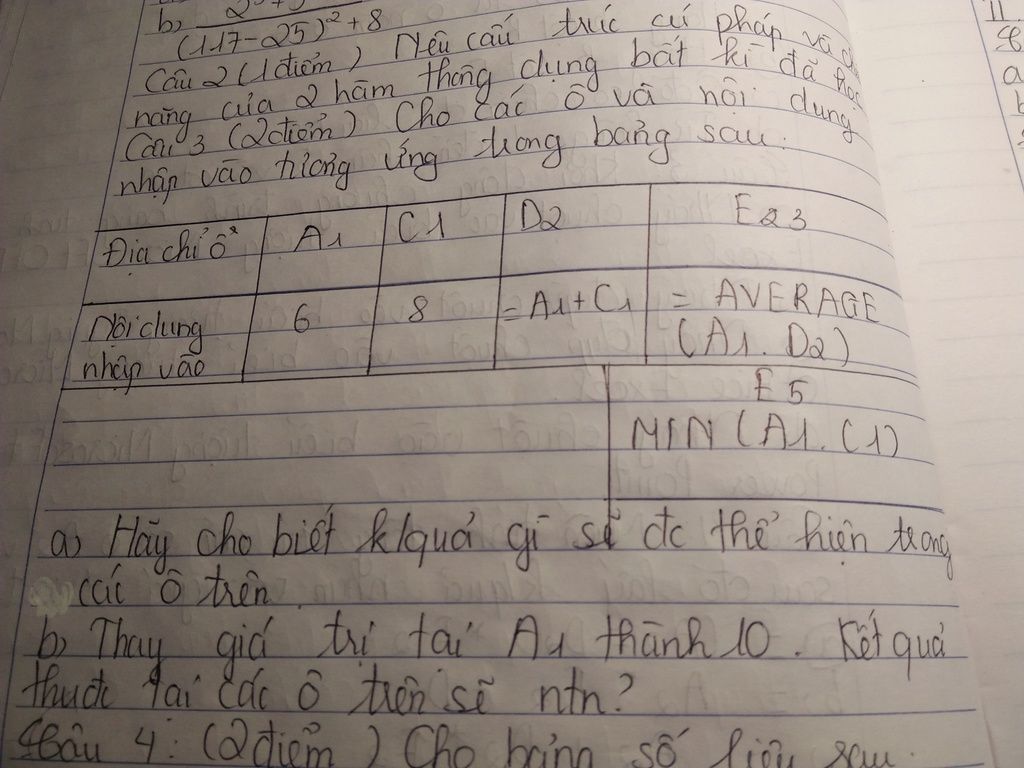 b)
(117-25)² + 8
Câu 2 (1 điểm) Nêu cấu trúc cú pháp và
năng của 2 hàm thông dụng bất kì đã học
Câu 3 (2 điểm) Cho các ô và nội dung
nhập vào tương ứng trong bảng sau:
Địa chỉ ô A1 C1 D2 E23
Nội dung 6 8 = A1 + C1 = AVERAGE
nhập vào (A1. D2)
E5
MIN (A1. C1)
a) Hãy cho biết k/quả gì sẽ đc thể hiện trong
các ô trên.
b) Thay giá trị tại A1 thành 10. Kết quả
thuđc tại các ô trên sẽ ntn?
Câu 4: (2 điểm) Cho bảng số liệu sau:
11
a
b